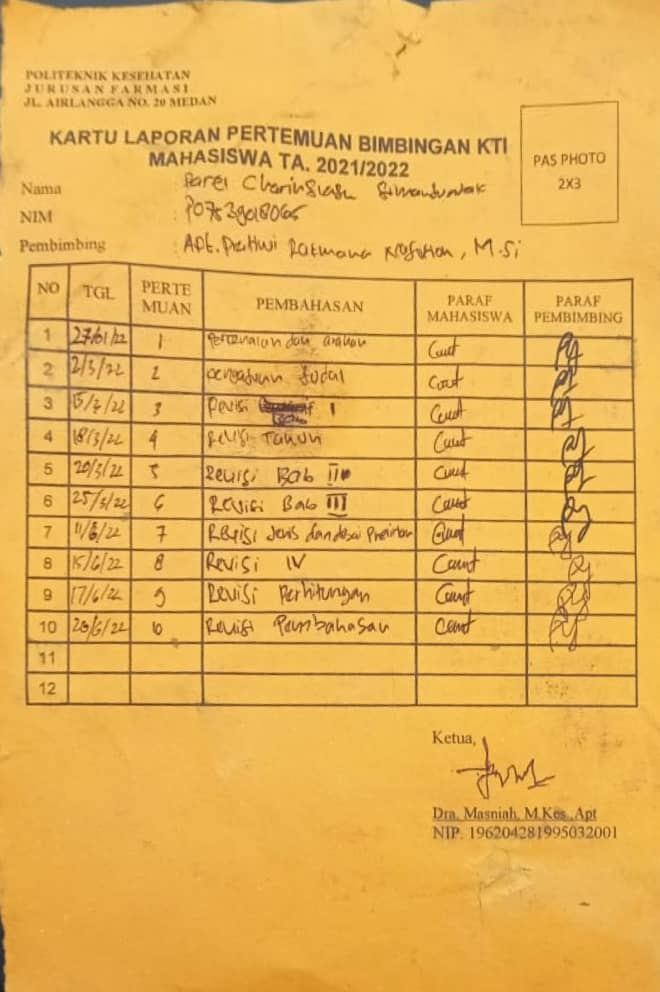 POLITEKNIK KESEHATAN
JURUSAN FARMASI
JL. AIRLANGGA NO. 20 MEDAN
KARTU LAPORAN PERTEMUAN BIMBINGAN KTI
MAHASISWA TA. 2021/2022
PAS PHOTO
2X3
Nama
NIM : P07539018065
Pembimbing : Apt. Pratiwi Rukmana Nasution, M.Si
NO TGL PERTEMUAN PEMBAHASAN PARAF MAHASISWA PARAF PEMBIMBING
1 27/01/22 1 Perkenalan dan arahan
2 2/3/22 2 Judul
3 15/3/22 3 Revisi Bab 1
4 18/3/22 4 Revisi Tahun
5 20/3/22 5 Revisi Bab II
6 25/3/22 6 Revisi Bab III
7 11/6/22 7 Revisi Jenis dan
8 15/6/22 8 Revisi IV
9 17/6/22 9 Revisi Perhitungan
10 20/6/22 10 Revisi Pembahasan
11
12
Ketua,
Dra. Masniah, M.Kes.,Apt
NIP. 196204281995032001